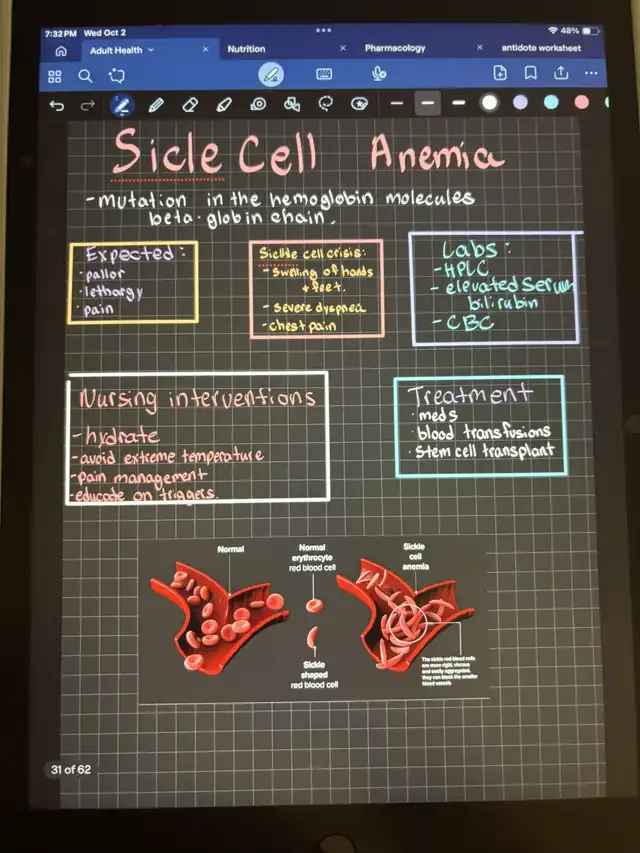 7:32 PM Wed Oct 2
48%
Adult Health
Nutrition
Pharmacology
antidote worksheet
Sicle Cell Anemia
-mutation in the hemoglobin molecules
beta-globin chain.
Expected:
·pallor
·lethargy
·pain
Sicklie cell crisis:
-swelling of hands
+ feet.
-severe dyspnea
-chest pain
Labs:
-HPLC
-elevated serum
bilirubin
-CBC
Nursing interventions
-hydrate
-avoid extreme temperature
-pain management
-educate on triggers.
Treatment
·meds
·blood transfusions
·stem cell transplant
Normal
Normal
erythrocyte
red blood cell
Sickle
cell
anemia
Sickle
shaped
red blood cell
The sickle red blood cells
are more rigid, viscous
and easily aggregated,
they can block the smaller
blood vessels
31 of 62